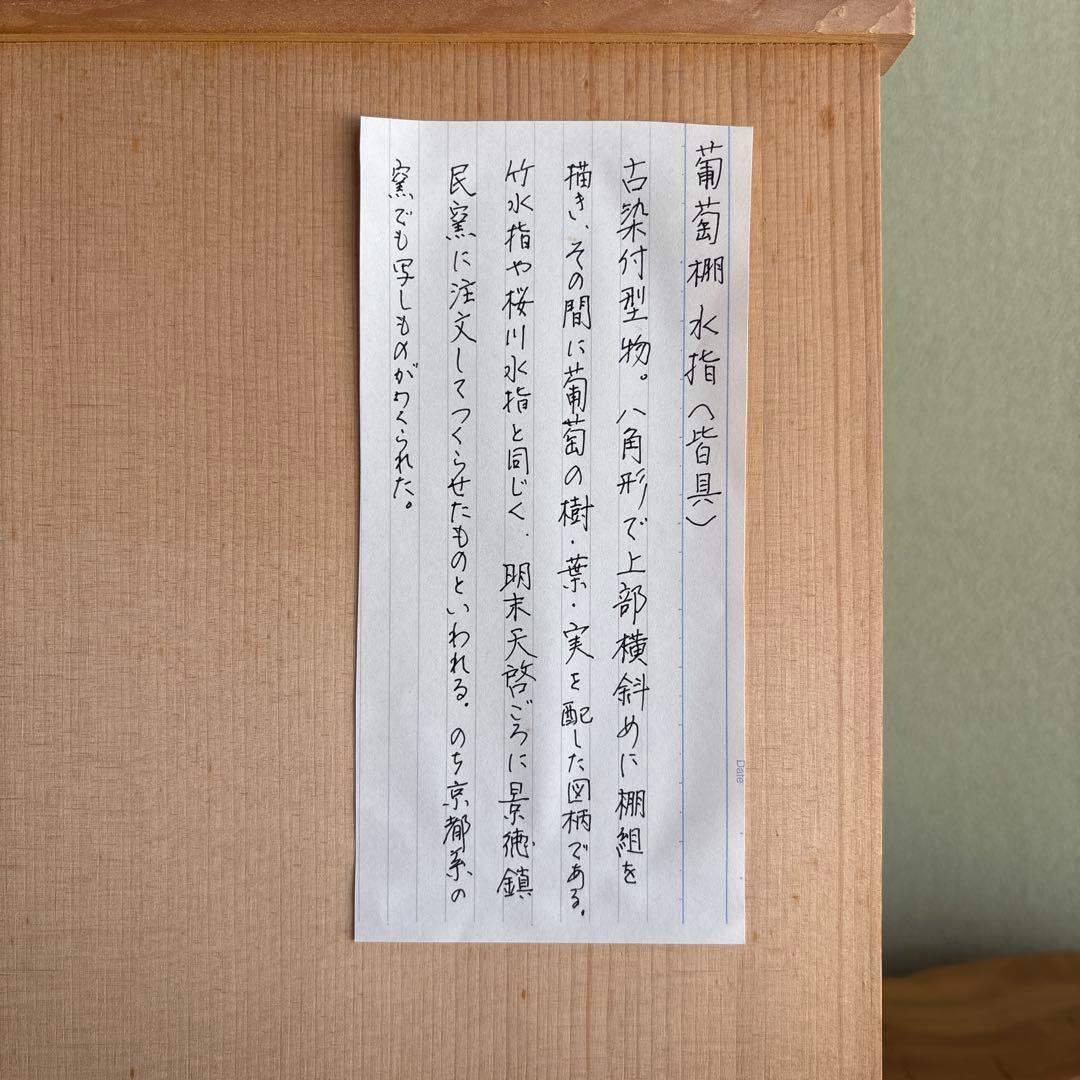 葡萄棚水指（皆具）
古染付型物。八角形で上部横斜めに棚組を
描き、その間に葡萄の樹・葉・実を配した図柄である。
竹水指や桜川水指と同じく、明末天啓ごろに景徳鎮
民窯に注文してつくらせたものといわれる。のち京都系の
窯でも写しものがつくられた。
Date